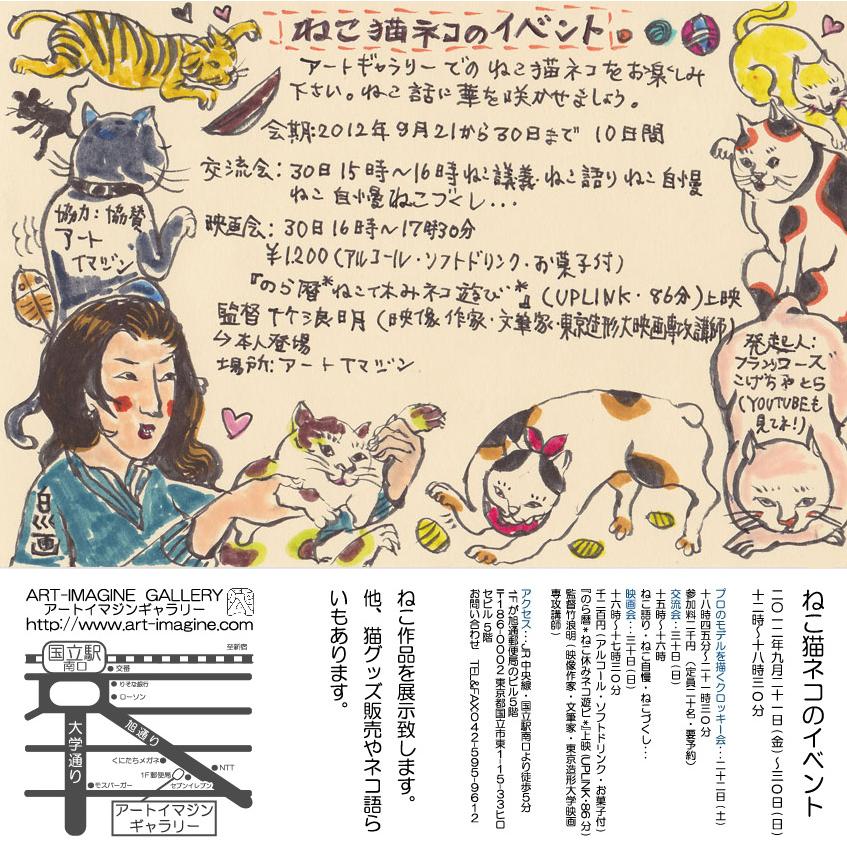 ねこ猫ネコのイベント
アートギャラリーでのねこ猫ネコをお楽しみ
下さい。ねこ話に華を咲かせましょう。
会期:2012年9月21から30日まで 10日間
交流会:30日15時〜16時ねこ講義・ねこ語りねこ自慢
ねこ自慢ねこづくし...
映画会:30日16時〜17時30分
¥1,200(アルコール・ソフトドリンク・お菓子付)
『のら暦*ねこ休みネコ遊び*』(UPLINK・86分)上映
監督 竹浪明(映像作家・文筆家・東京造形大映画専攻講師)
↳本人登場
場所:アートイマジン
協力:協賛
アート
イマジン
発起人:
フランソワーズ
こげちゃとら
(YOUTUBEも
見てネ!)
ART-IMAGINE GALLERY
アートイマジンギャラリー
http://www.art-imagine.com
至新宿
国立駅
南口
交番
りそな銀行
ローソン
大学通り
旭通り
くにたちメガネ
NTT
1F郵便局
セブンイレブン
モスバーガー
アートイマジン
ギャラリー
ねこ猫ネコのイベント
二〇一二年九月二十一日(金)〜三〇日(日)
十二時〜十八時三〇分
プロのモデルを描くクロッキー会…二十二日(土)
十八時四五分〜二十一時三〇分
参加料二千円 (定員二十名・要予約)
交流会…三十日(日)
十五時〜十六時
ねこ語り・ねこ自慢・ねこづくし…
映画会…三十日(日)
十六時〜十七時三〇分
千二百円(アルコール・ソフトドリンク・お菓子付)
『のら暦*ねこ休みネコ遊び*』上映(UPLINK・86分)
監督竹浪明(映像作家・文筆家・東京造形大学映画
専攻講師)
アクセス…JR中央線・国立駅南口より徒歩5分
1Fが旭通郵便局のビル5階
〒186-0002 東京都国立市東1-15-33ヒロ
セビル5階
お問い合わせ TEL&FAX:042-595-9612
ねこ作品を展示致します。
他、猫グッズ販売やネコ語ら
いもあります。